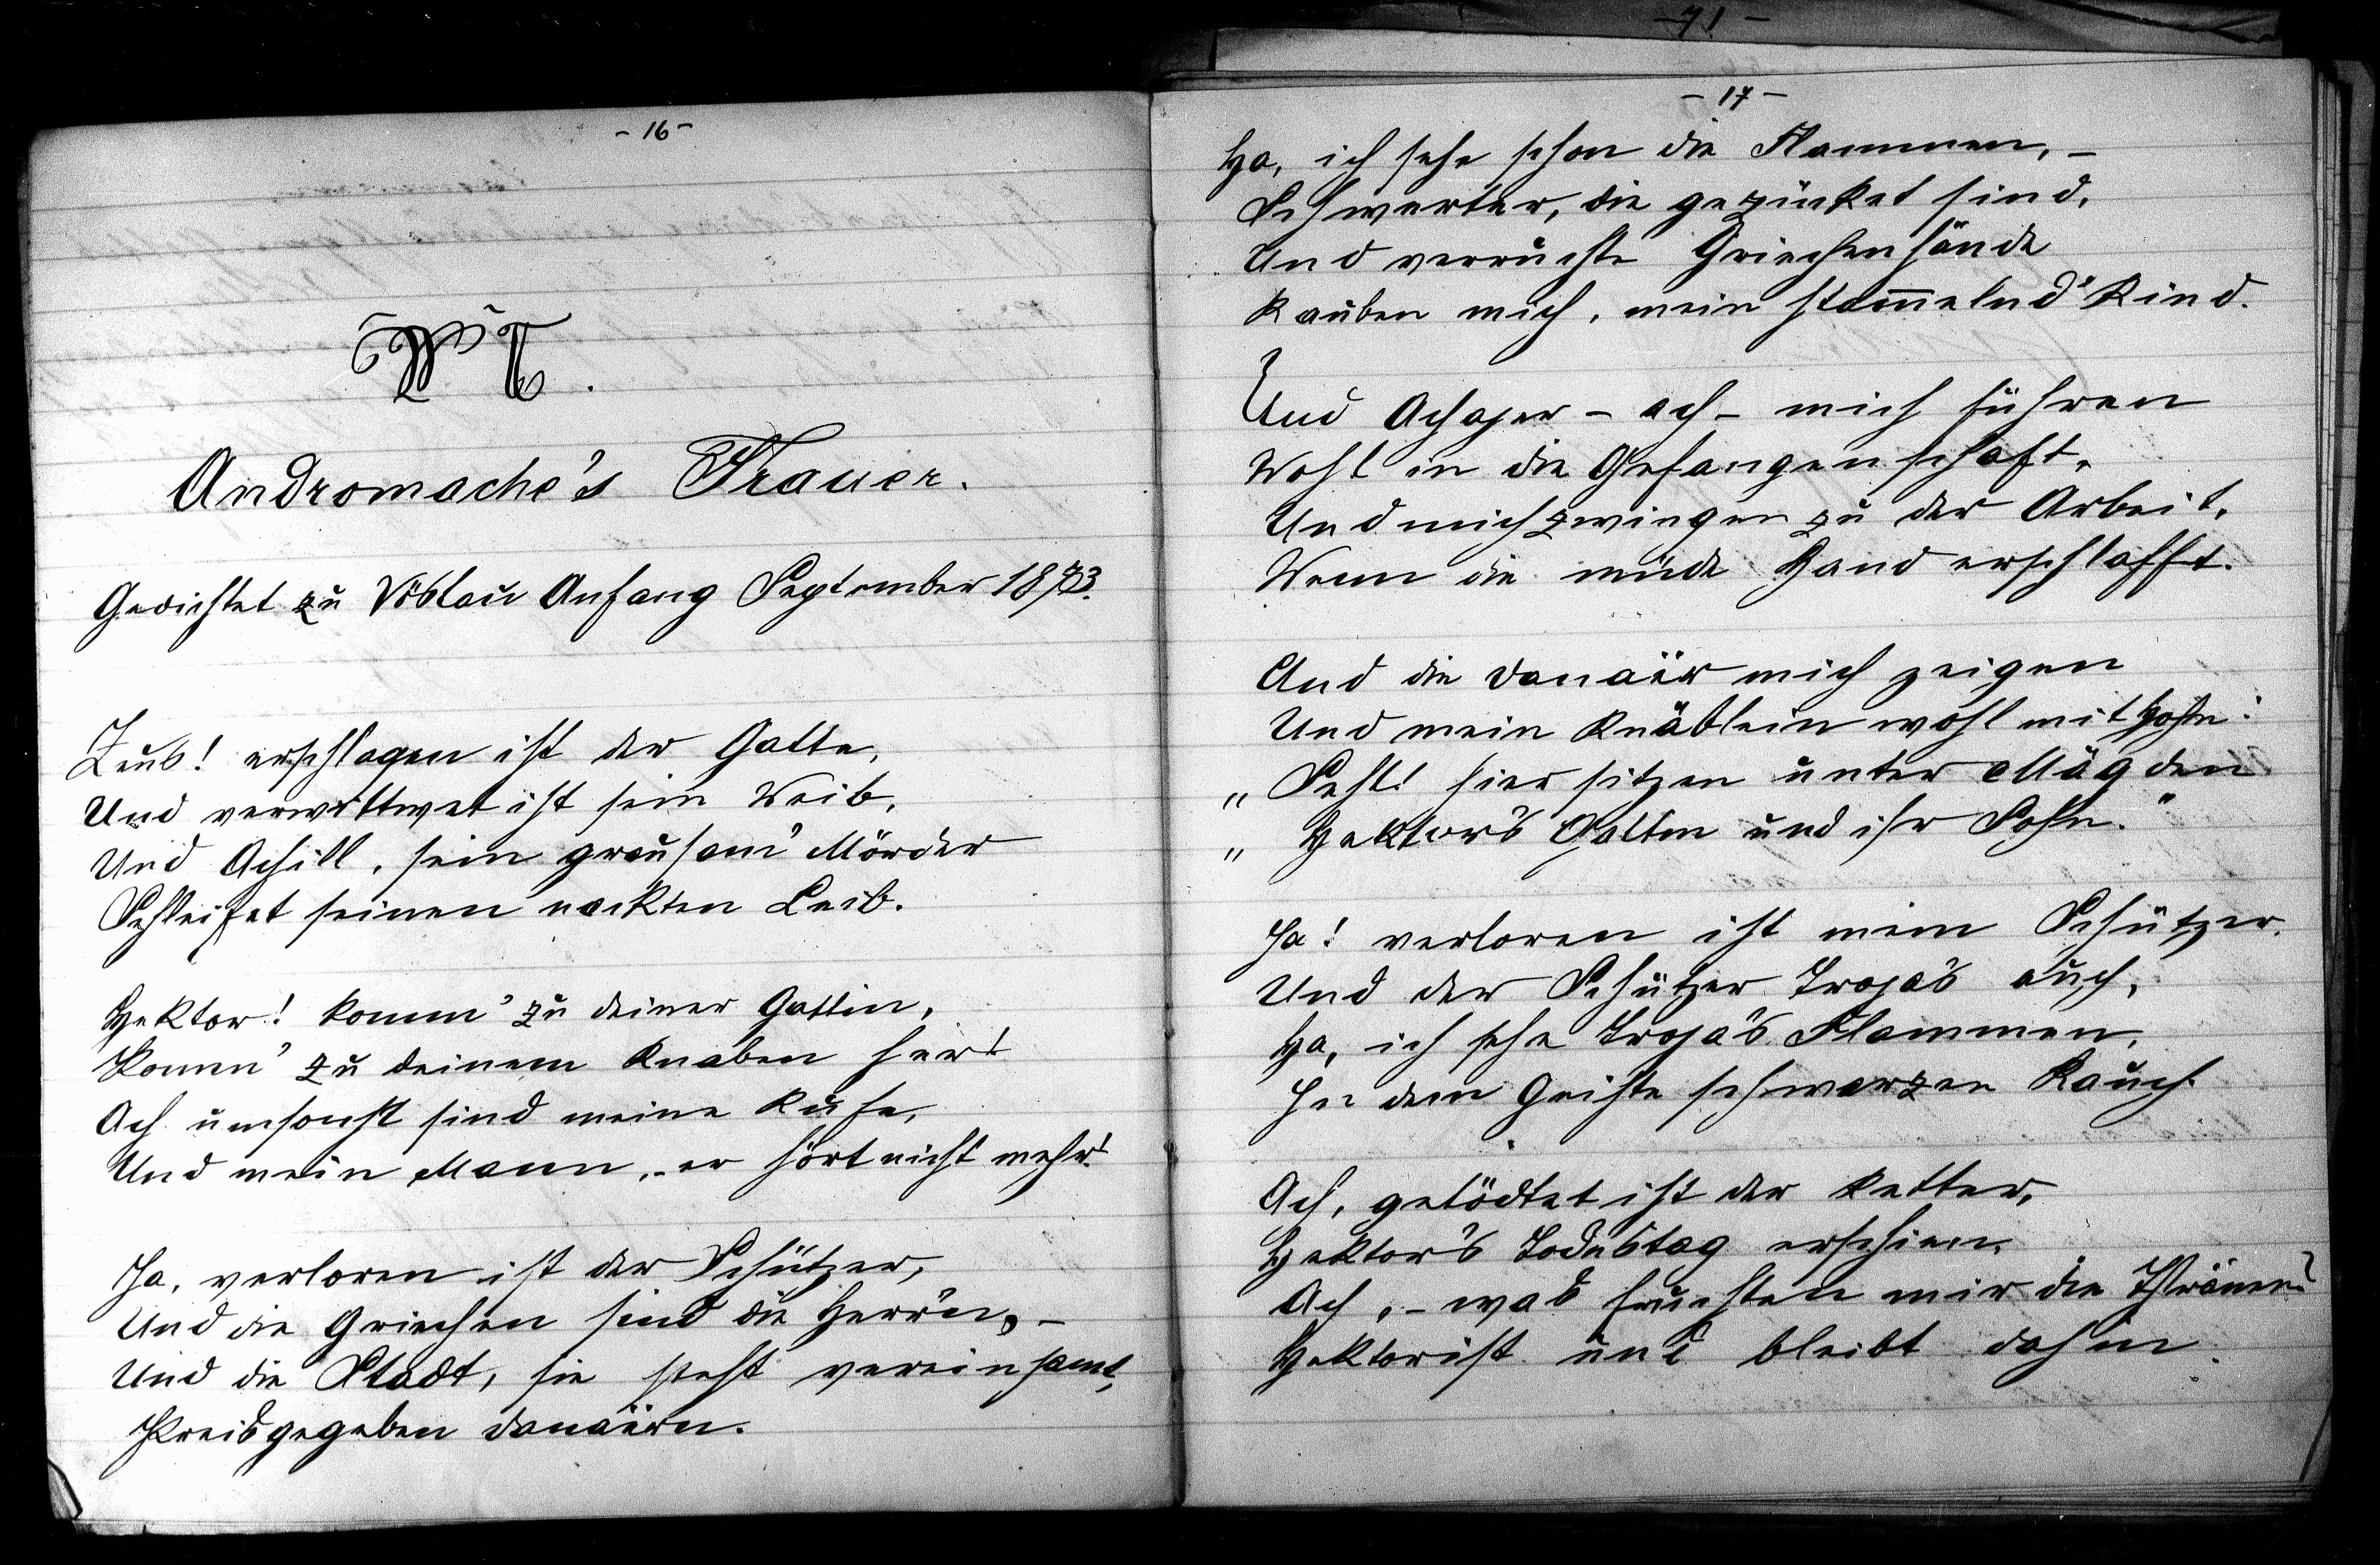 - 16 -
VI.
Andromache's Trauer.
Gedichtet zu Vöslau Anfang September 1873.
Zeus! erschlagen ist der Gatte,
Und verwittwet ist sein Weib,
Und Achill, sein grausam' Mörder
Schleifet seinen nackten Leib.
Hektor! komm' zu deiner Gattin,
Komm' zu deinem Knaben her!
Ach umsonst sind meine Rufe,
Und mein Mann, - er hört nicht mehr!
Ja, verloren ist der Schützer,
Und die Griechen sind die Herr'n, -
Und die Stadt, sie steht vereinsamt,
Preisgegeben Danaërn.
- 71 -
- 17 -
Ha, ich sehe schon die Flammen, -
Schwerter, die gezücket sind,
Und verruchte Griechenhände
Rauben mich, mein stam̅elnd' Kind.
Und Achajer - ach - mich führen
Wohl in die Gefangenschaft,
Und mich zwingen zu der Arbeit,
Wenn die müde Hand erschlafft.
Und die Danaër mich zeigen
Und mein Knäblein wohl mit Hohn:
„Seht! hier sitzen unter Mägden
„Hektor's Gattin und ihr Sohn."
Ja! verloren ist mein Schützer,
Und der Schützer Troja's auch,
Ha, ich sehe Troja's Flammen,
In dem Geiste schwarzen Rauch.
Ach, getödtet ist der Retter,
Hektor's Todestag erschien,
Ach, - was fruchten mir die Thränen?
Hektor ist und bleibt dahin.